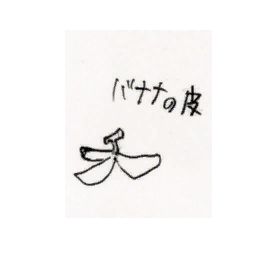 バナナの皮